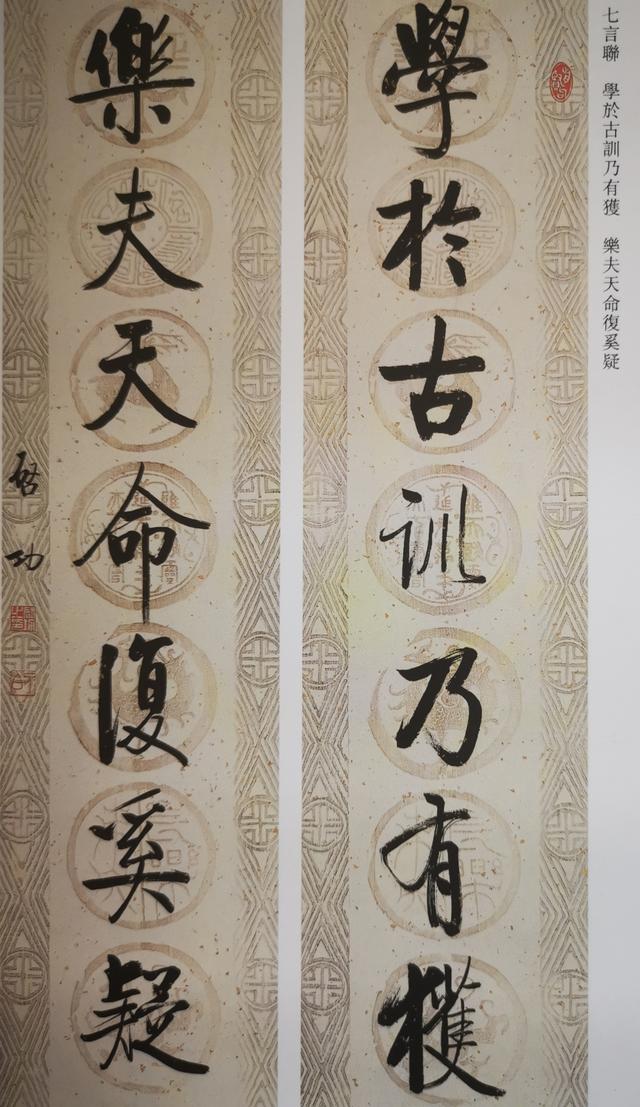 七言聯　學於古訓乃有獲　樂夫天命復奚疑
學於古訓乃有獲
樂夫天命復奚疑
啓功